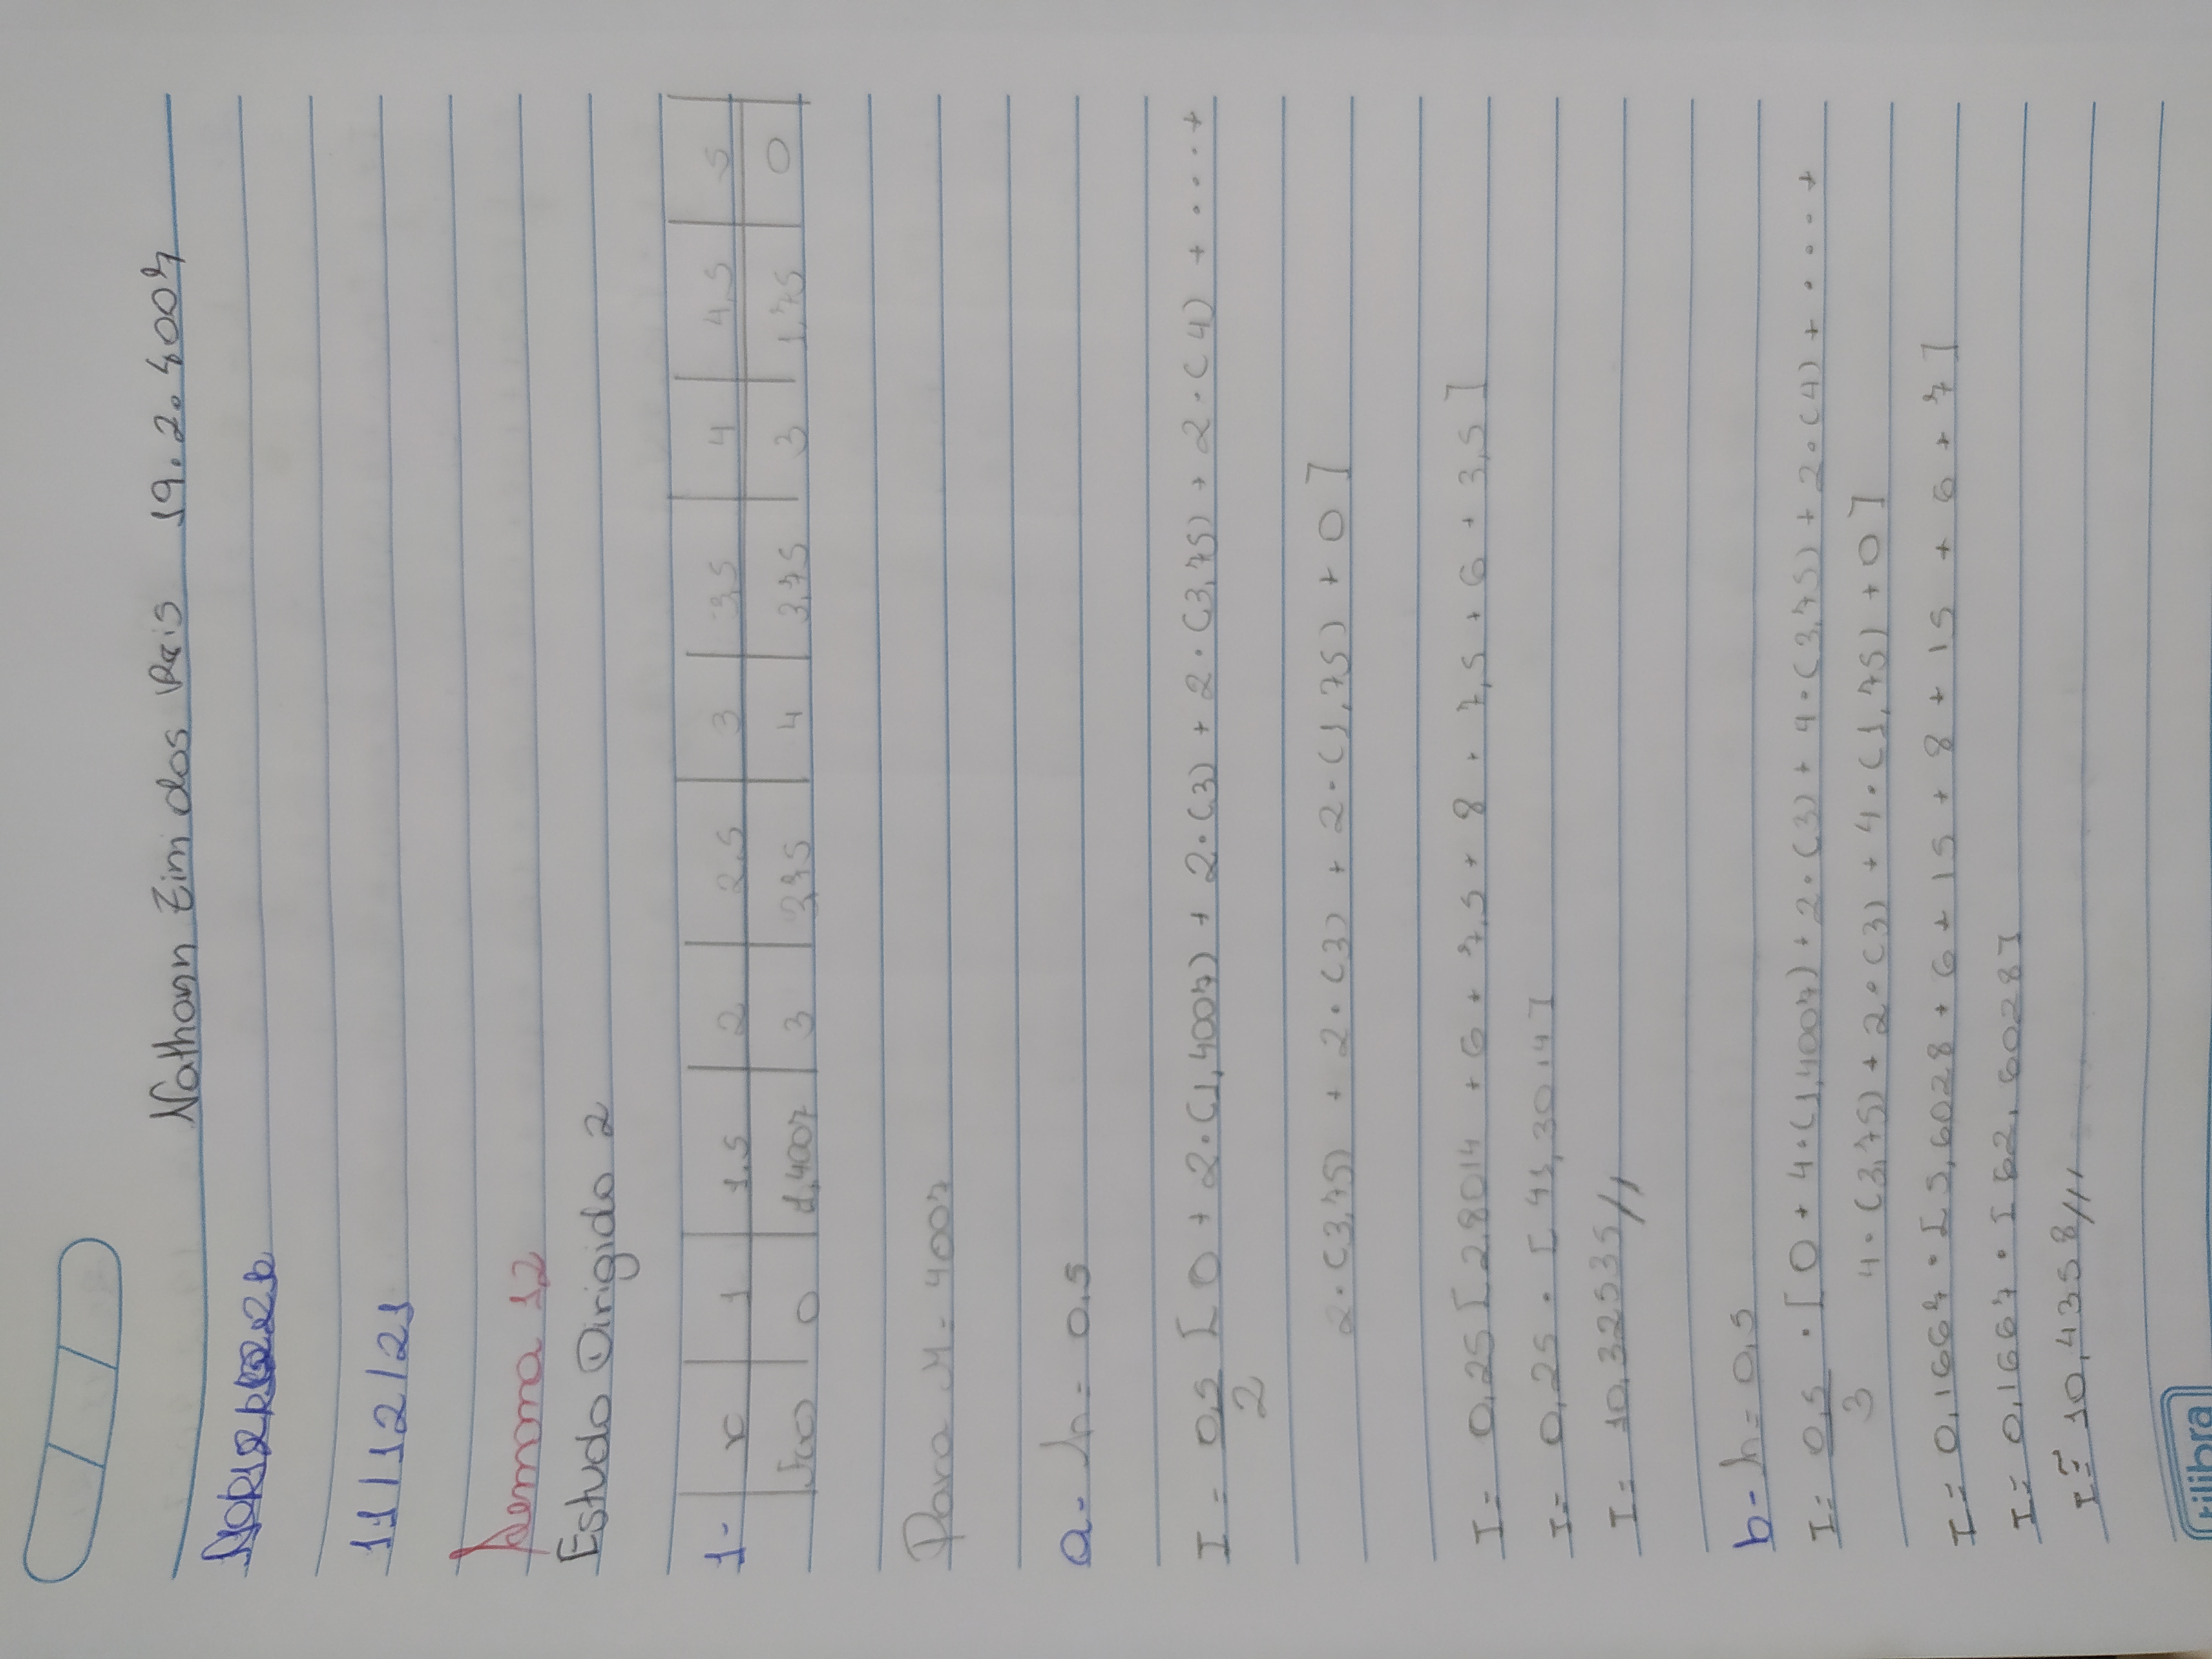 Nathann Zini dos Reis 19.2.4007
11/12/21
Semana 12
Estudo Dirigido 2
1- x 1 1,5 2 2,5 3 3,5 4 4,5 5
f(x) 0 1,4007 3 3,75 4 3,75 3 1,75 0
Para M = 4007
a- h = 0,5
I = 0,5/2 [0 + 2·(1,4007) + 2·(3) + 2·(3,75) + 2·(4) + ···+
2·(3,75) + 2·(3) + 2·(1,75) + 0]
I = 0,25 [2,8014 + 6 + 7,5 + 8 + 7,5 + 6 + 3,5]
I = 0,25 · [41,3014]
I = 10,32535//
b- h = 0,5
I = 0,5/3 · [0 + 4·(1,4007) + 2·(3) + 4·(3,75) + 2·(4) + ···+
4·(3,75) + 2·(3) + 4·(1,75) + 0]
I = 0,1667 · [5,6028 + 6 + 15 + 8 + 15 + 6 + 7]
I = 0,1667 · [62,6028]
I ≅ 10,4358///
tilibra